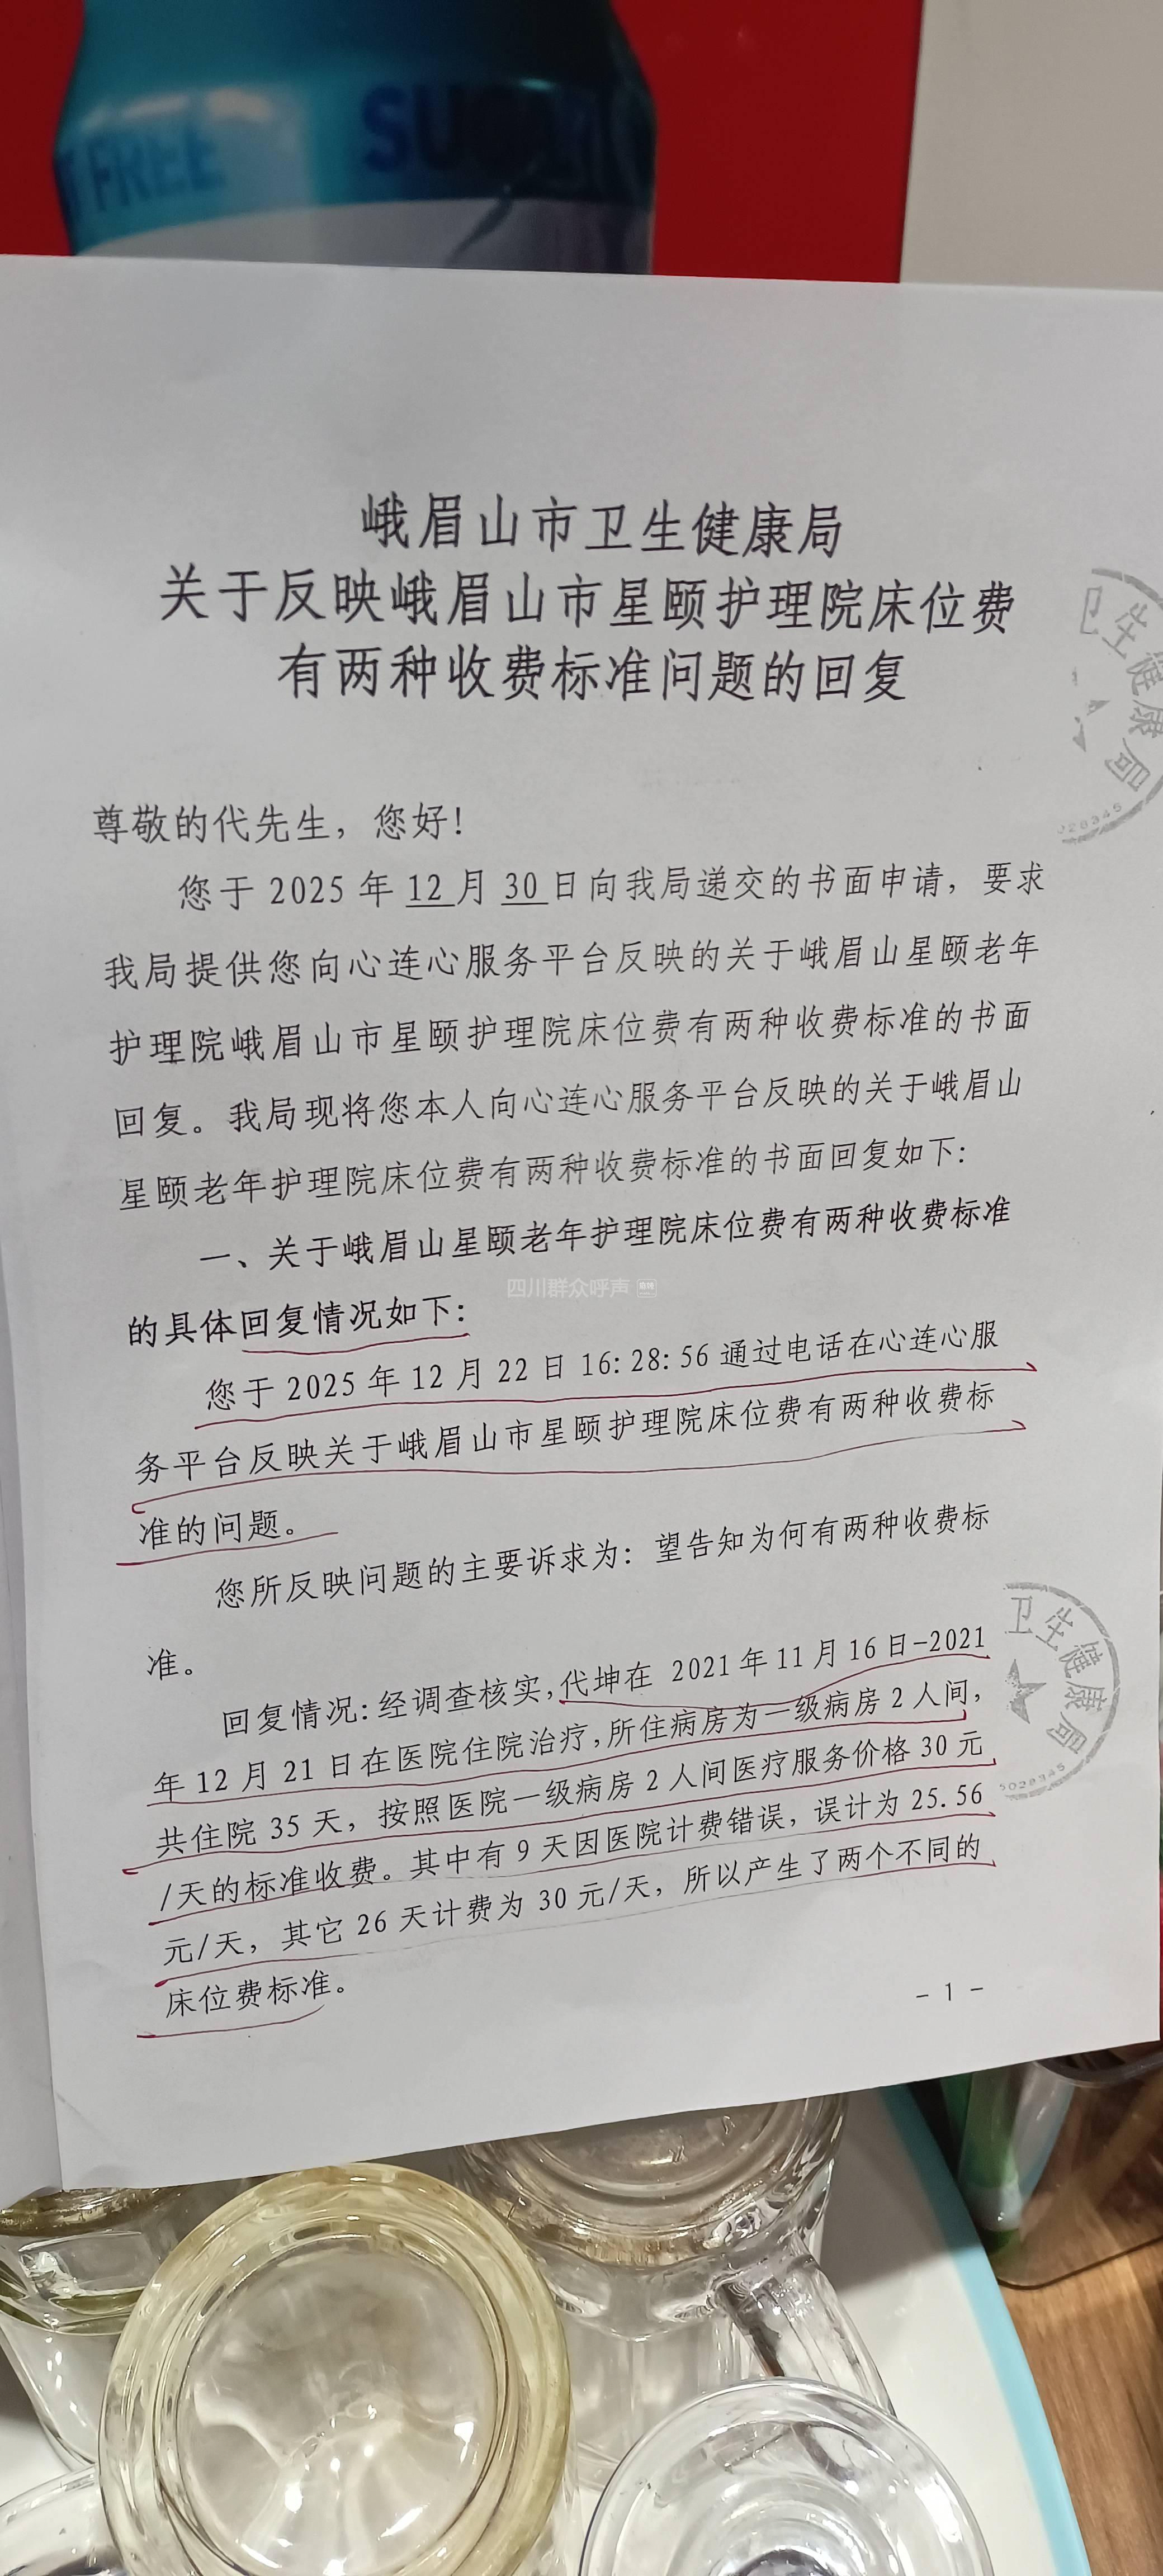 FREE
峨眉山市卫生健康局
关于反映峨眉山市星颐护理院床位费
有两种收费标准问题的回复
卫生健康局
028345
尊敬的代先生，您好！
您于 2025 年 12 月 30 日向我局递交的书面申请，要求
我局提供您向心连心服务平台反映的关于峨眉山星颐老年
护理院峨眉山市星颐护理院床位费有两种收费标准的书面
回复。我局现将您本人向心连心服务平台反映的关于峨眉山
星颐老年护理院床位费有两种收费标准的书面回复如下：
一、关于峨眉山星颐老年护理院床位费有两种收费标准
四川群众呼声
的具体回复情况如下：
您于 2025 年 12 月 22 日 16:28:56 通过电话在心连心服
务平台反映关于峨眉山市星颐护理院床位费有两种收费标
准的问题。
您所反映问题的主要诉求为：望告知为何有两种收费标
准。
卫生健康局
5028345
回复情况：经调查核实，代坤在 2021 年 11 月 16 日-2021
年 12 月 21 日在医院住院治疗，所住病房为一级病房 2 人间，
共住院 35 天，按照医院一级病房 2 人间医疗服务价格 30 元
/天的标准收费。其中有 9 天因医院计费错误，误计为 25.56
元/天，其它 26 天计费为 30 元/天，所以产生了两个不同的
床位费标准。
- 1 -